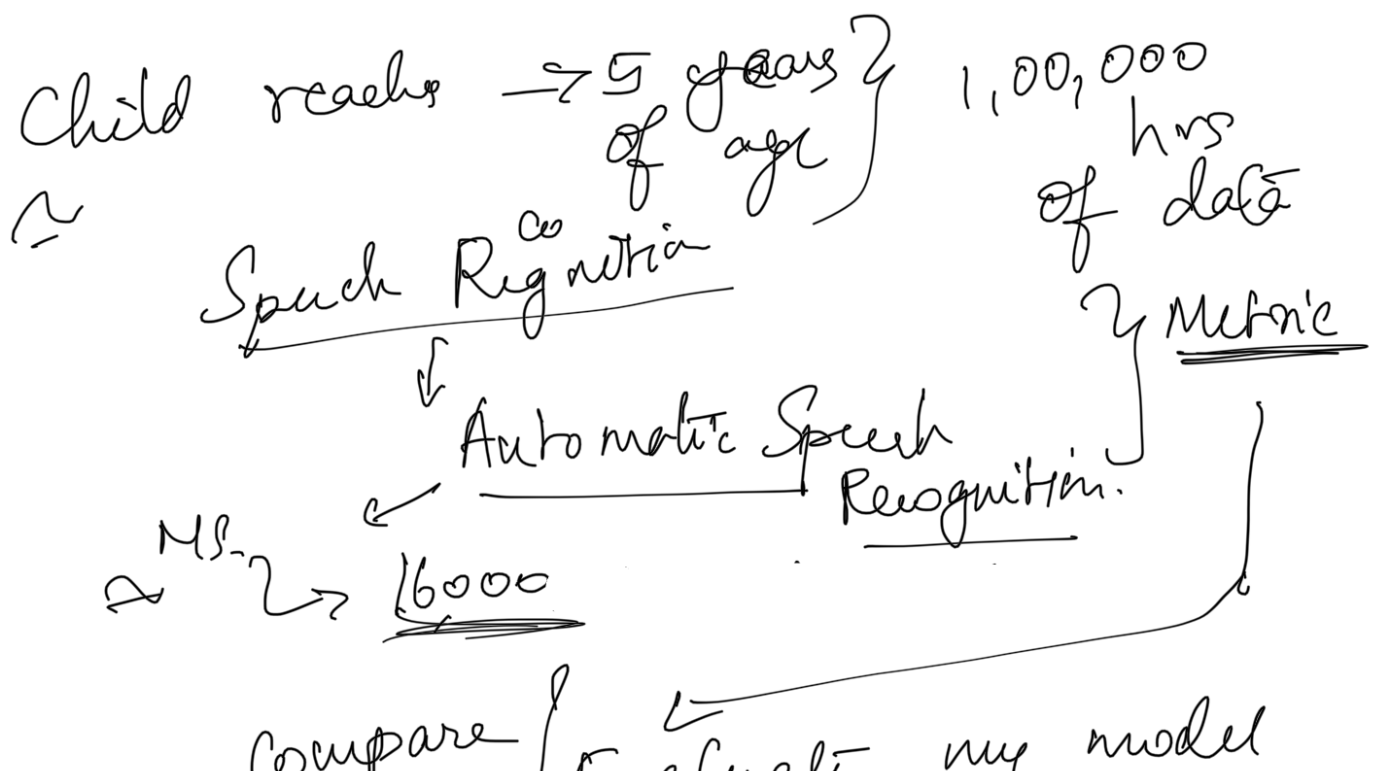 Child reaches → 5 years
of age
1,00,000
hrs
of data
Speech Recognition
Metric
Automatic Speech
Recognition.
MS.
16000
compare /
my model